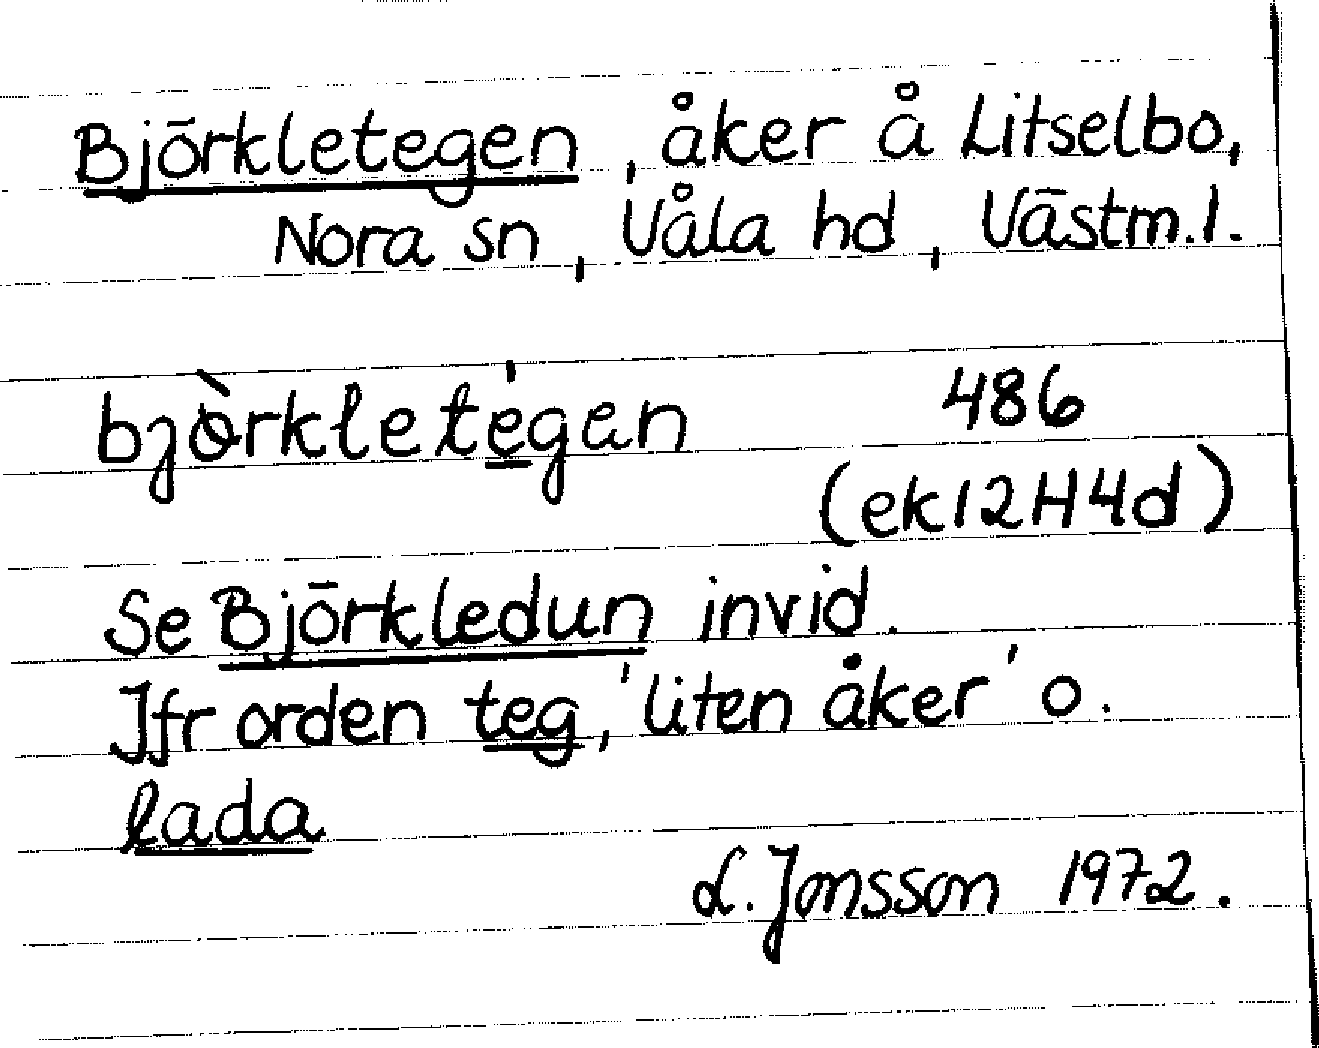 Björkletegen, åker å Litselbo,
Nora sn, Våla hd, Västm.l.
bjòrkletégen 486
(ek12H4d)
Se Björkledun invid.
Jfr orden teg, 'liten åker' o.
lada
L. Jonsson 1972.